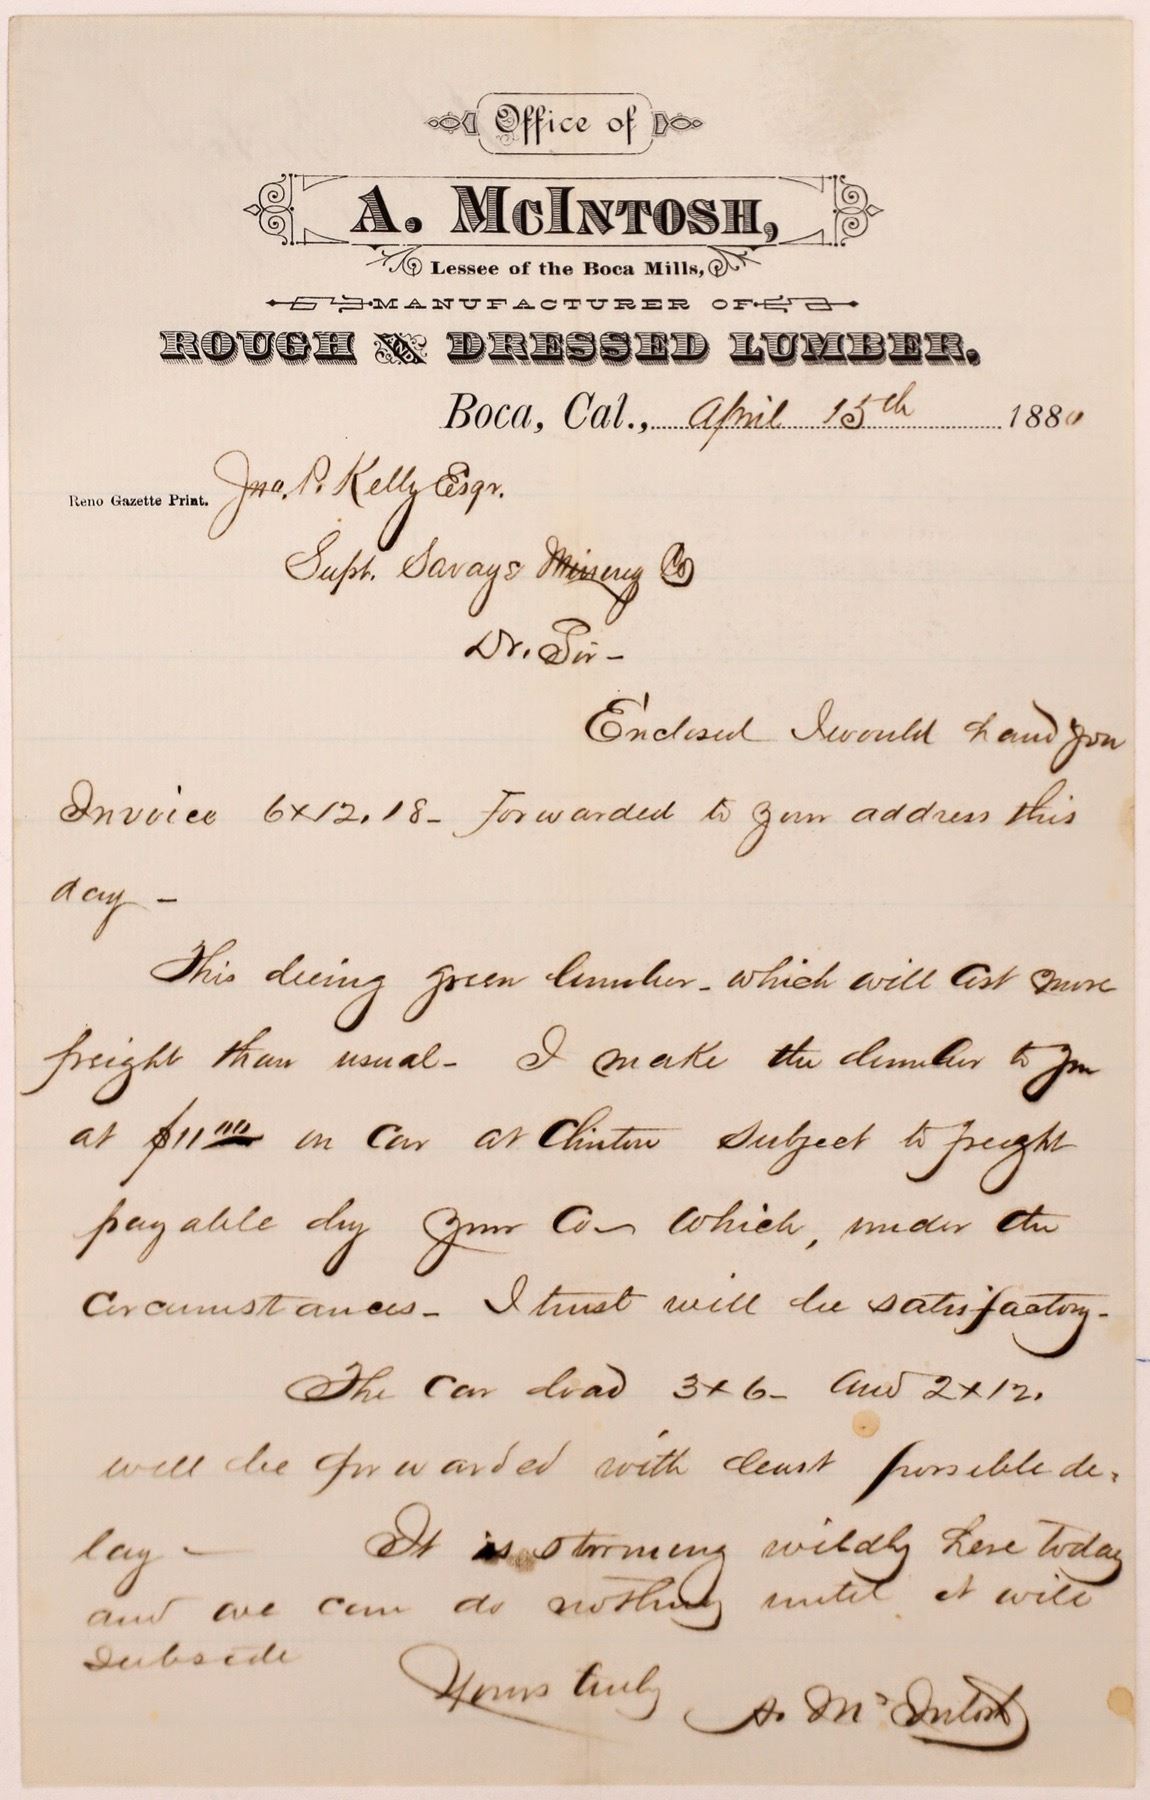 Office of
A. McIntosh,
Lessee of the Boca Mills,
MANUFACTURER OF
ROUGH AND DRESSED LUMBER.
Boca, Cal., April 15th 1880
Reno Gazette Print.
Jno. P. Kelly Esqr.
Supt. Savage Mining Co
Dr. Sir -
Enclosed I would hand you
Invoice 6x12. 18 - forwarded to your address this
day -
This being green lumber - which will cost more
freight than usual - I make the lumber to you
at $11 00 on car at Clinton subject to freight
payable by your Co - which, under the
circumstances - I trust will be satisfactory -
The car load 3x6 - and 2x12.
will be forwarded with least possible de-
lay - It is storming wildly here today
and we can do nothing until it will
subside
Yours truly A. McIntosh